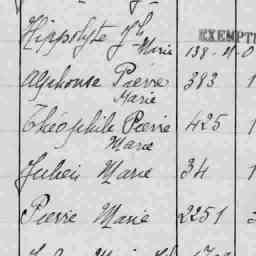 Hippolyte Jh
Marie 138
EXEMPT
Alphonse Pierre 383 1
Marie
Théophile Pierre 425 1
Marie
Julien Marie 34 1
Pierre Marie 2251